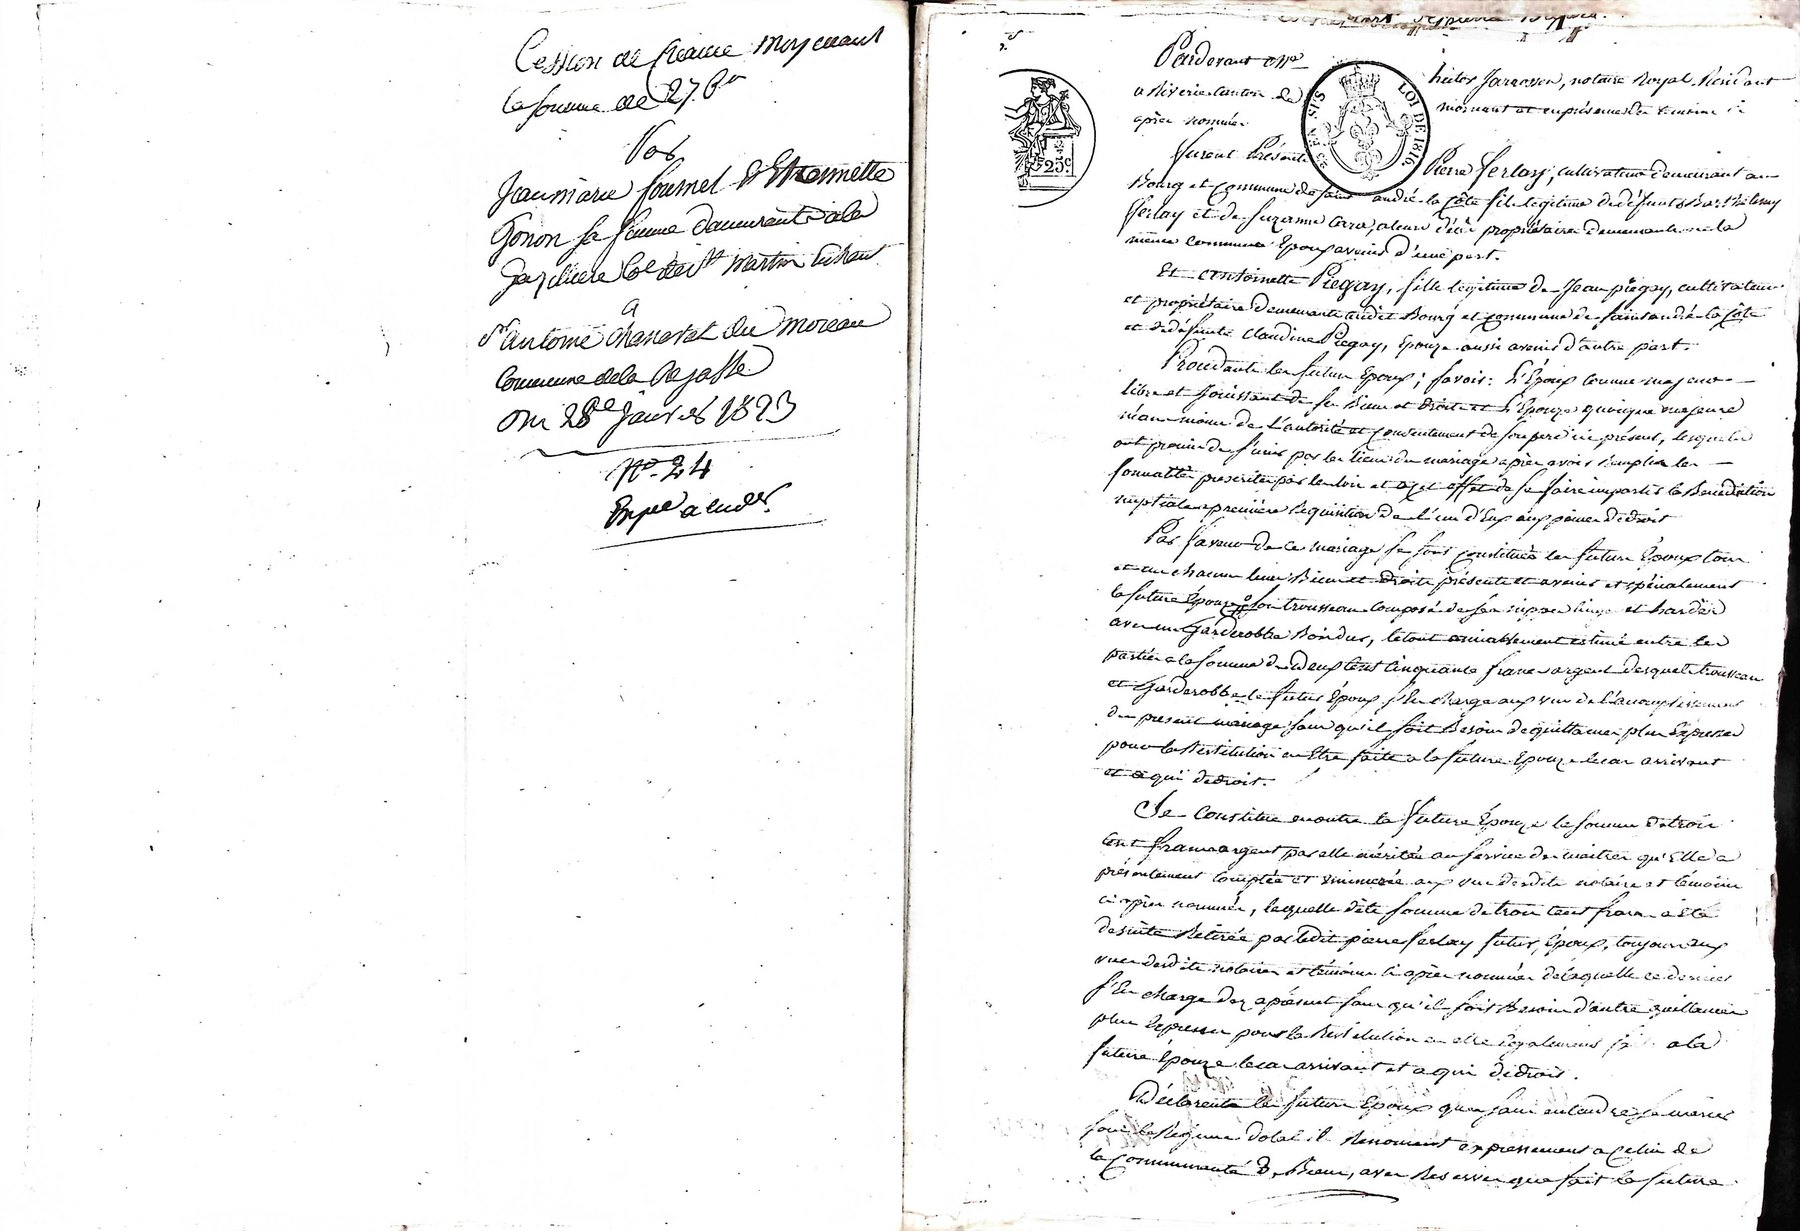 Cession de Créance moyenant
la somme de 276#
Par
Jean marie fournel Et Etiennette
Gonon sa femme demeurants à la
Coe de St martin
a
Sr antoine du moreau
Commune de la Rajasse
Du 28e janvier 1823
No. 24
Expee
Pardevant Me
hector Jarrosson, notaire Royal Résidant
a Riverie canton de
mornant et en présence des témoins ci
après nommés
25c
LOI DE 1816.
furent Présents
Pierre ferlay, cultivateur demeurant au
Bourg et Commune de saint andré la Côte fils légitime de défunts Barthélemy
ferlay et de Suzanne propriétaire demeurants en la
même commune Epoux avenir d'une part.
Et antoinette Piégay, fille légitime de Jean piégay, cultivateur
et propriétaire demeurants audit Bourg et commune de saint andré la Côte
et de défunte Claudine Piégay, Epouze aussi avenir d'autre part.
Procédants les futurs Epoux; savoir: l'Epoux comme majeur
libre et Jouissant de ses Biens et droits et l'Epouze quoique majeure
néanmoins de l'autorité et consentement de son père ici présent, lesquels
ont promis de s'unir par les liens du mariage après avoir Remplis les
formalités prescrites par les lois et à cet effet de se faire impartir la Bénédiction
nuptiale a première Requisition de l'un d'Eux aux peines de droit
Par faveur de ce mariage se sont constitués les futurs Epoux tous
et un chacun leurs Biens et Droits présents et avenirs et spécialement
la future Epouze son trousseau composé de ses nippes linge et hardes
avec un Garderobbe Bois dur, le tout amiablement estimé entre les
parties a la somme de deux cents cinquante francs argent desquels trousseau
et Garderobbe le futur Epoux s'En charge aux vu de l'accomplissement
du présent mariage sans qu'il soit Besoin de quittances plus Expresses
pour la Restitution en Etre faite a la future Epouze le cas arrivant
et a qui de droit.
Se Constitue en outre la future Epouze la somme de trois
cents francs argent par elle méritée au service des maîtres qu'Elle a
présentement comptée et nummerée aux vus desdits notaire et témoins
ci après nommés, laquelle dite somme de trois cents francs a été
de suite Retirée par ledit pierre ferlay futur Epoux, toujours aux
vues desdits notaire et témoins ci après nommés de laquelle ce dernier
s'En charge dez a présent sans qu'il soit Besoin d'autre quittances
plus Expresses pour la Restitution en etre également a la
future Epouze le cas arrivant et a qui de droit.
Déclarents les futurs Epoux quen sans entendre se marier
sous le Régime dotal il Renoncent expressément a Celui de
la Communauté de Biens, avec Réserve que fait la future